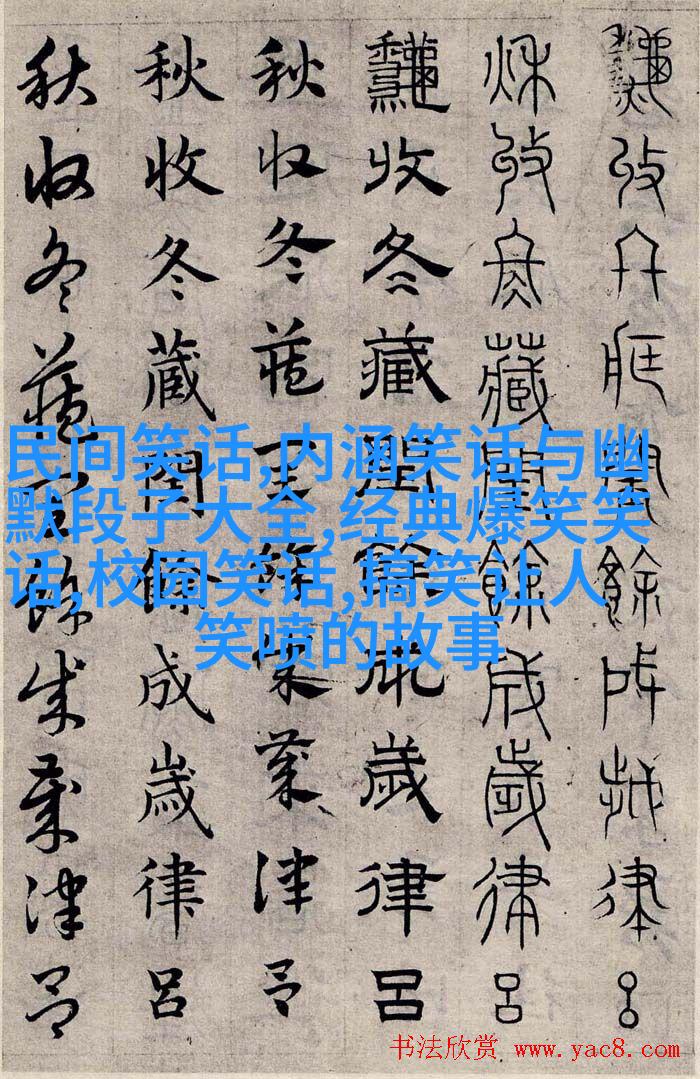 秋收冬藏閏餘成歲律呂
秋收冬藏閏餘成歲律呂
龝收冬藏閏餘成歲律呂
秋收冬藏閏餘成歲律呂
秋收冬藏閏餘成歲律呂
秋收冬藏閏餘成歲律呂
民间笑话,内涵笑话与幽
默段子大全,经典爆笑笑
话,校园笑话,搞笑让人
笑喷的故事
书法欣赏 www.yac8.com